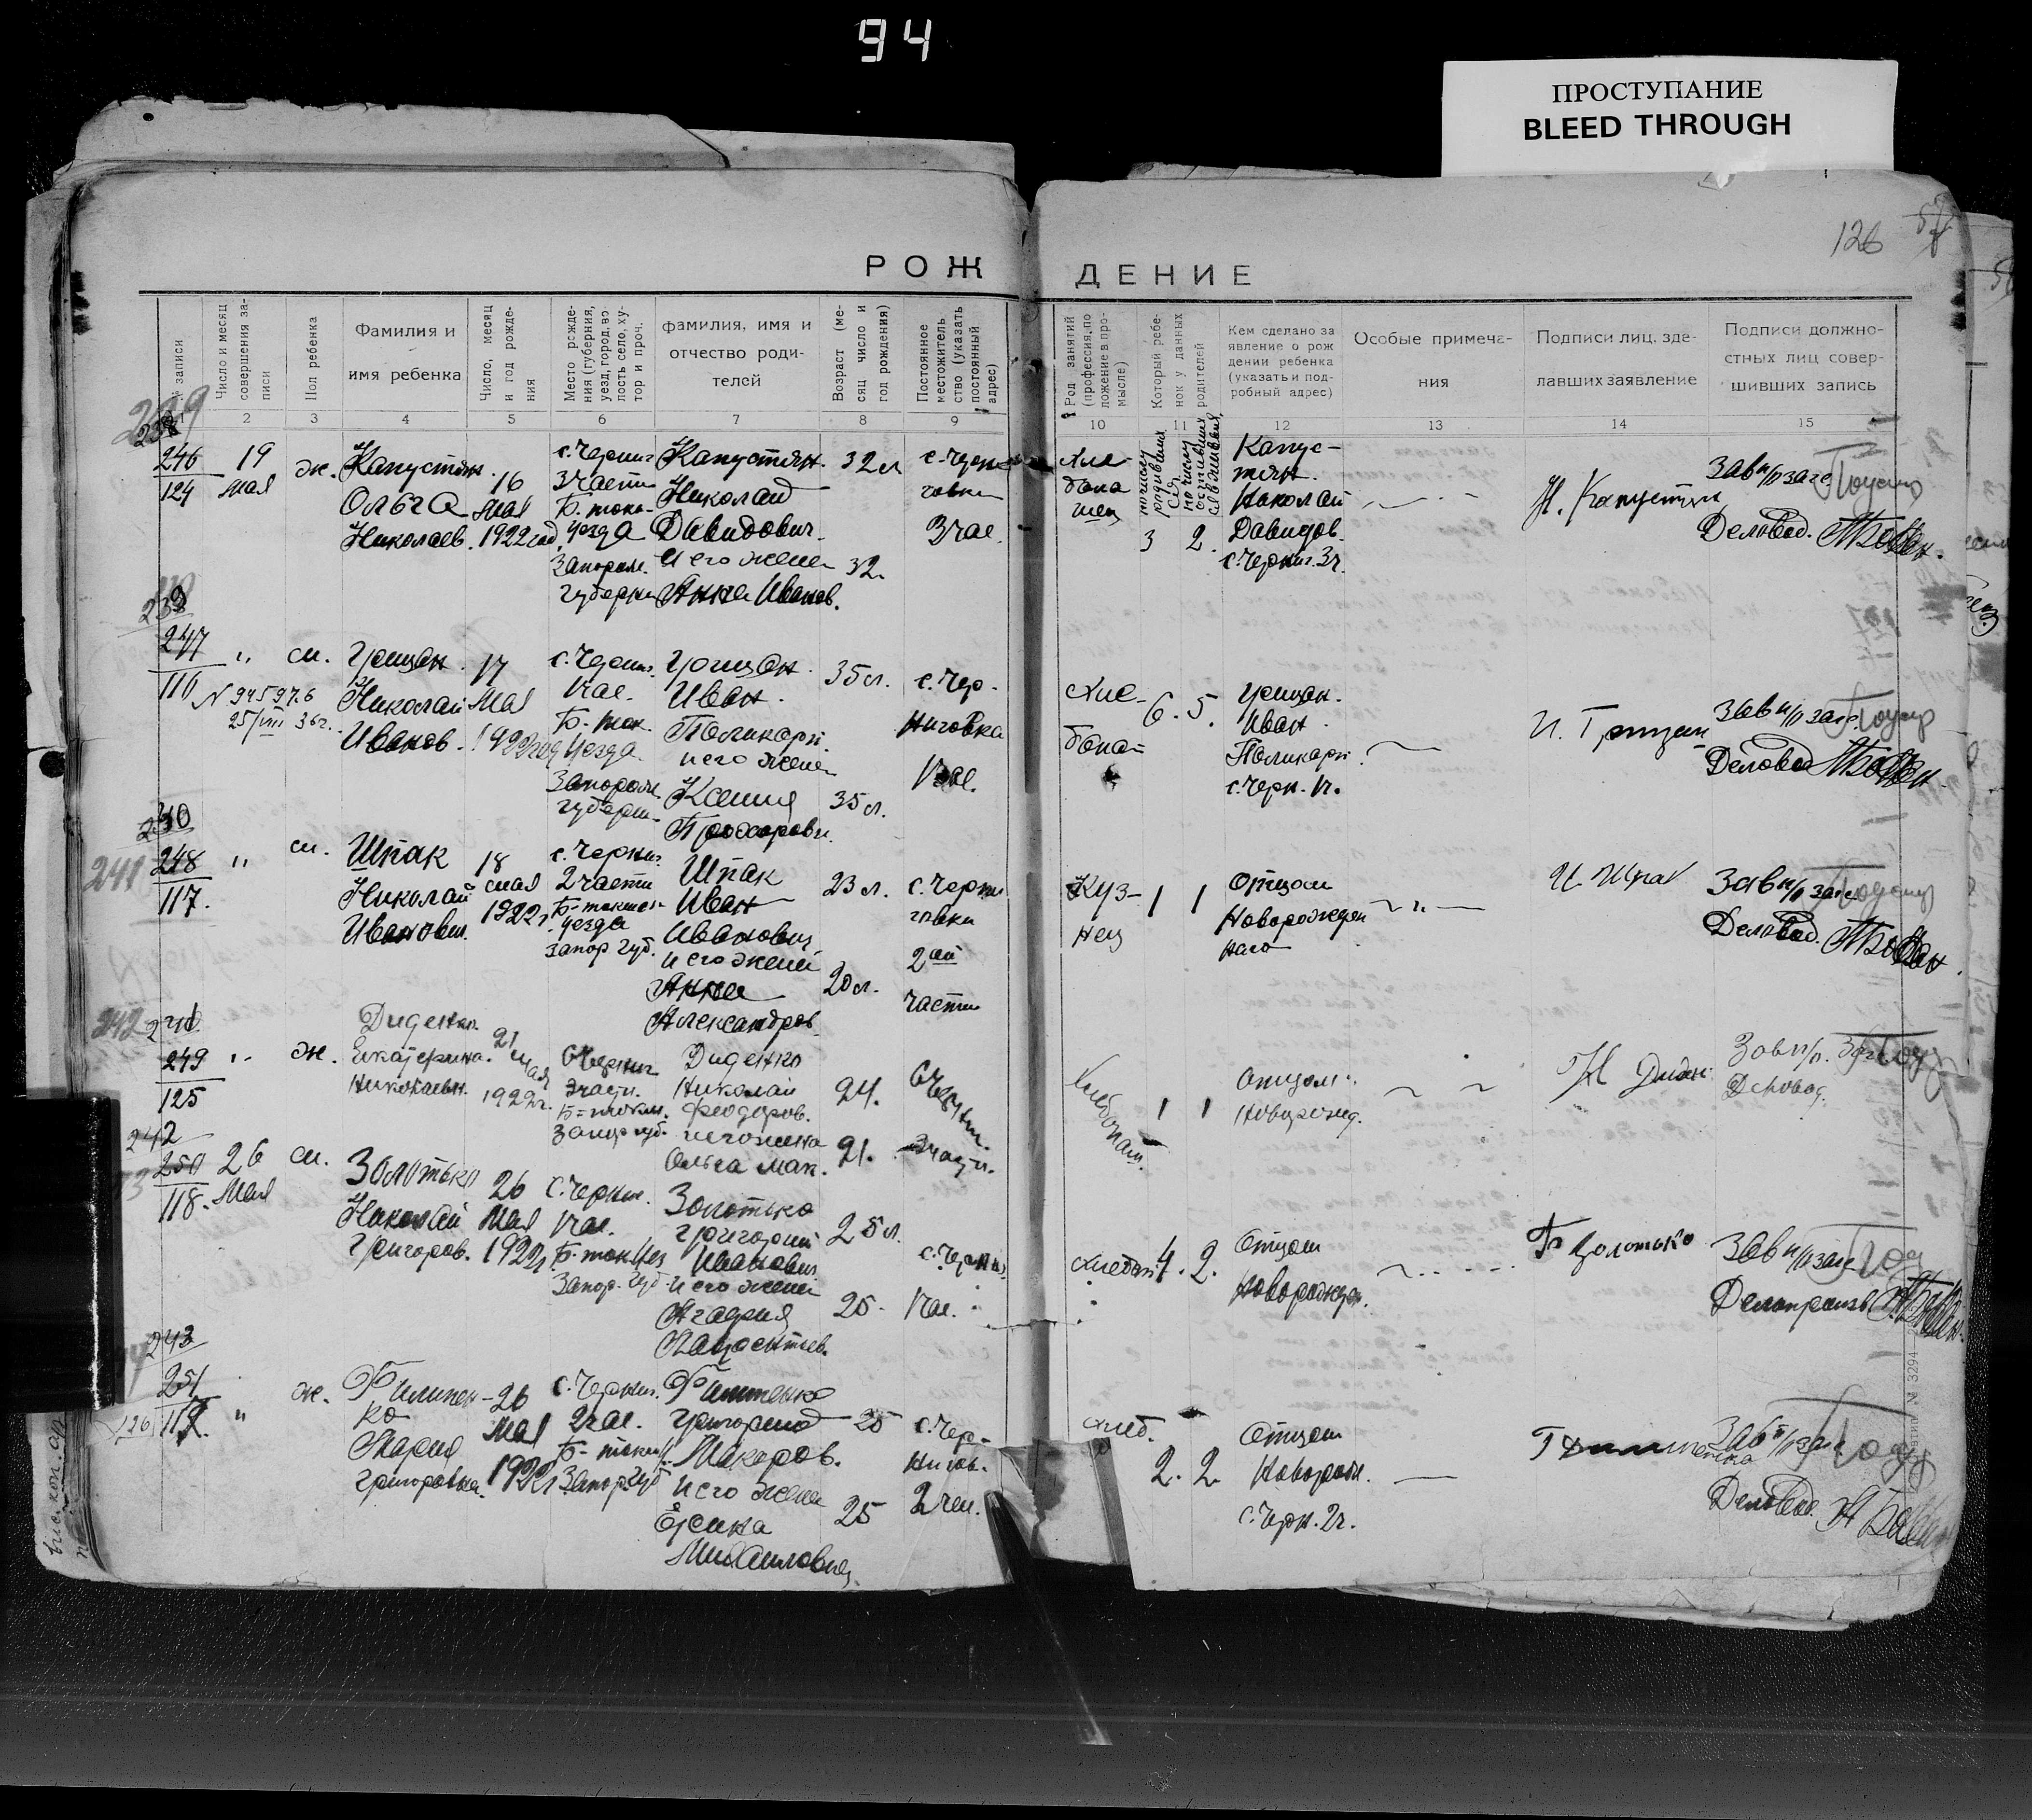 94
ПРОСТУПАНИЕ
BLEED THROUGH
126
РОЖ
ДЕНИЕ
записи
Число и месяц совершения записи
Пол ребенка
Фамилия и
имя ребенка
Число, месяц и год рождения
Место рождения (губерния, уезд, город, волость село, хутор и проч.
фамилия, имя и
отчество роди-
телей
Возраст (месяц число и год рождения)
Постоянное местожительство (указать постоянный адрес)
Род занятий (профессия, положение в промысле)
Который ребенок у данных родителей
Кем сделано за
явление о рож
дении ребенка
(указать и под-
робный адрес)
Особые примеча-
ния
Подписи лиц, зде-
лавших заявление
Подписи должно-
стных лиц совер-
шивших запись
2 3 4 5 6 7 8 9
10 11 12 13 14 15
246
124
19
мая
ж.
Капустян.
Ольга
Николаев.
16
мая
1922 год
с. Черниг
3 части
Б. тока-
уезда
Запорож.
губерни
Капустян.
Николай
Давидович.
и его жена
Анна Иванов.
32 л
32.
с. Черни
говки
3 час.
Хле-
бопа
шец
3 2.
Капус-
тян.
Николай
Давидов.
с. Черниг. 3 ч.
Н. Капустян
Зав п/заг
Деловод.
247
116
"
м.
N 945976
25/VIII 36 г.
Грицан.
Николай
Иванов.
17
Мая
1922 год
с. Черниг.
1 час.
Б. ток.
уезда
Запорож
губерн.
Грицан.
Иван.
Поликарп.
и его жена
Ксения
Прохоровн.
35 л.
35 л.
с. Чер-
ниговка
1 час.
Хле-
бопа-
6. 5.
Грицан.
Иван.
Поликарп.
с. Черн. 1 ч.
И. Грицан
Зав п/заг
Деловод
241
248
117.
"
м.
Шпак
Николай
Иванович.
18
мая
1922 г.
с. Черниг.
2 части
Б-токмак-
уезда
Запор губ.
Шпак
Иван
Иванович
и его жена
Анна
Александров.
23 л.
20 л.
с. Черни
говки
2ай
части
Куз-
нец
1 1
Отцом
Новорожден
наго
И. Шпак
Зав п/заг
Деловод.
242
249
125
"
ж.
Диденко.
Екатерина.
Николаевн.
21
мая
1922 г.
с Черниг
3 част.
Б=токм.
Запор губ.
Диденко
Николай
Феодоров.
и его жена
Ольга Мак.
24.
21.
с Черниг.
3 част.
Хлебопаш.
1 1
Отцом.
Новорожд.
Н Диден
Зав п/п. Заг
Деловод.
242
250
118.
26
Мая
м.
Золотько
Николай
Григоров.
26
Мая
1922 г
с. Черниг.
1 час.
Б. ток уез
Запор. Губ.
Золотько
Григорий
Иванович
и его жена
25 л.
25.
с. Черниг.
1 час.
хлебоп.
4. 2.
Отцом
новорожден.
Г. Золотько
Зав п/заг
Делопроизв
243
251
126
"
ж.
Филипен-
ко
Мария
Григоровна.
26
Мая
1922 г
с. Черниг.
2 час.
Б-токм
Запор. Губ
Филипенко
Григорий
Макаров.
и его жена
Михайловна
25
25
с. Чер-
нигов.
2 час.
хлеб.
2. 2
Отцом
Новорожд.
с. Черн. 2 ч.
Зав п/заг
Деловод.